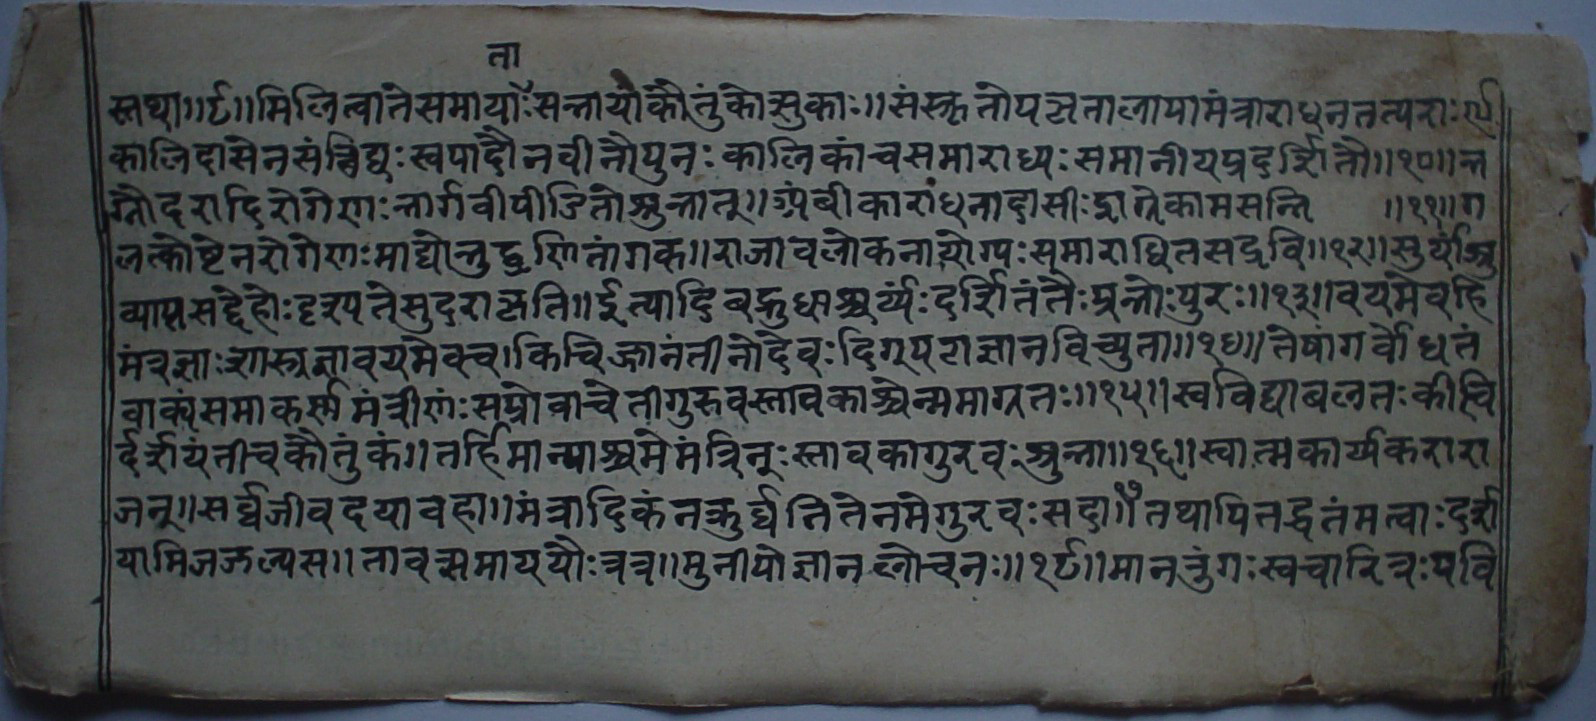 ता
स्तथा॥८॥मिलित्वातेसमायौःसन्नायाकौतुंकोत्सुकाः॥संस्कृतोपज्ञतालायामंत्राराधनतत्पराः९
कालिदासेनसंछिद्यःस्वपादौनवीनौपुनःकालिकांचसमाराध्यःसमानीयप्रदर्शितौ॥१०॥ल
ग्नौदरादिरोगेणःभार्गवीपीडितोभुभात्॥अंबीकाराधनादासीःद्राग्नेकामसन्नि ॥११॥ग
लत्कोष्टेनरोगेणःमाद्योभुद्व्रणितांगक॥राजावलोकनायोग्यःसमाराधितसद्रवि॥१२॥सुर्याभु
व्याप्तसद्देहोःदृश्यतेसुदराज्ञति॥ईत्यादिबहुधाश्चर्य्यंःदर्शितंतैःप्रभोःपुरः॥१३॥वयमेवहि
मंत्रज्ञाःशास्त्रज्ञावयमेवच।किंचिज्ञानंतीनोदेवःदिगूपराज्ञानविच्युता॥१४॥तेषांगर्वोधतं
वाक्यंसमाकर्स्ममंत्रीणंःसप्रोवाचेतीगुरुवस्तावकाश्चेन्ममाग्रतः॥१५॥स्वविद्याबलतःकीचि
र्द्दर्शयंतीचकौतुंकं॥तर्हिमान्याश्चमेमंत्रिन्ःस्तावकागुरवःभुभा॥१६॥स्वात्मकार्यकरारा
जन्॥सर्व्वजीवदयावहा॥मंत्रादिकंनकुर्व्वंतितेनमेगुरवःसदा॥१७तथापितद्वतंमत्वाःदर्श
यामिजजल्पस॥तावत्समाययौःतत्र॥मुनीपोज्ञानलोचनः॥१८॥मानतुंगःस्वचारित्रःपवि